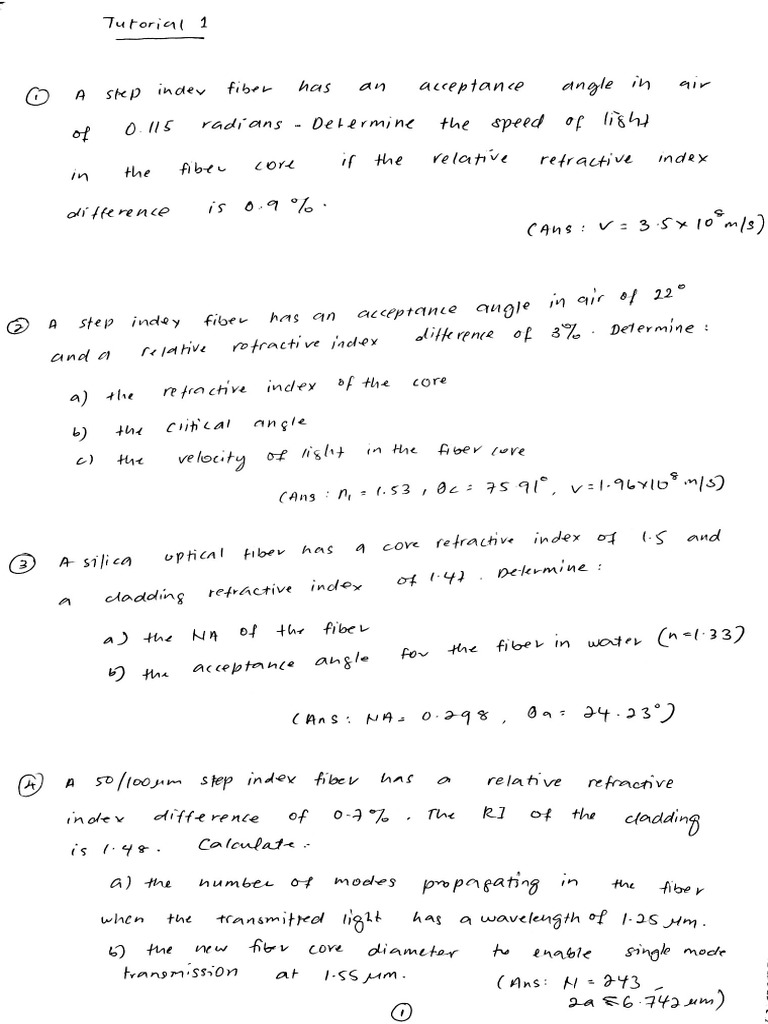 Tutorial 1
① A step index fiber has an acceptance angle in air
of 0.115 radians - Determine the speed of light
in the fiber core if the relative refractive index
difference is 0.9%.
(Ans: v = 3.5x10⁸ m/s)
② A step index fiber has an acceptance angle in air of 22°
and a relative refractive index difference of 3%. Determine:
a) the refractive index of the core
b) the critical angle
c) the velocity of light in the fiber core
(Ans: n₁ = 1.53, θc = 75.91°, v=1.96x10⁸ m/s)
③ A silica optical fiber has a core refractive index of 1.5 and
a cladding refractive index of 1.47. Determine:
a) the NA of the fiber
b) the acceptance angle for the fiber in water (n=1.33)
(Ans: NA= 0.298, θa= 24.23°)
④ A 50/100μm step index fiber has a relative refractive
index difference of 0.7%. The RI of the cladding
is 1.48. Calculate:-
a) the number of modes propagating in the fiber
when the transmitted light has a wavelength of 1.25 μm.
b) the new fiber core diameter to enable single mode
transmission at 1.55 μm.
(Ans: N = 243
2a ≤ 6.742 μm)
①